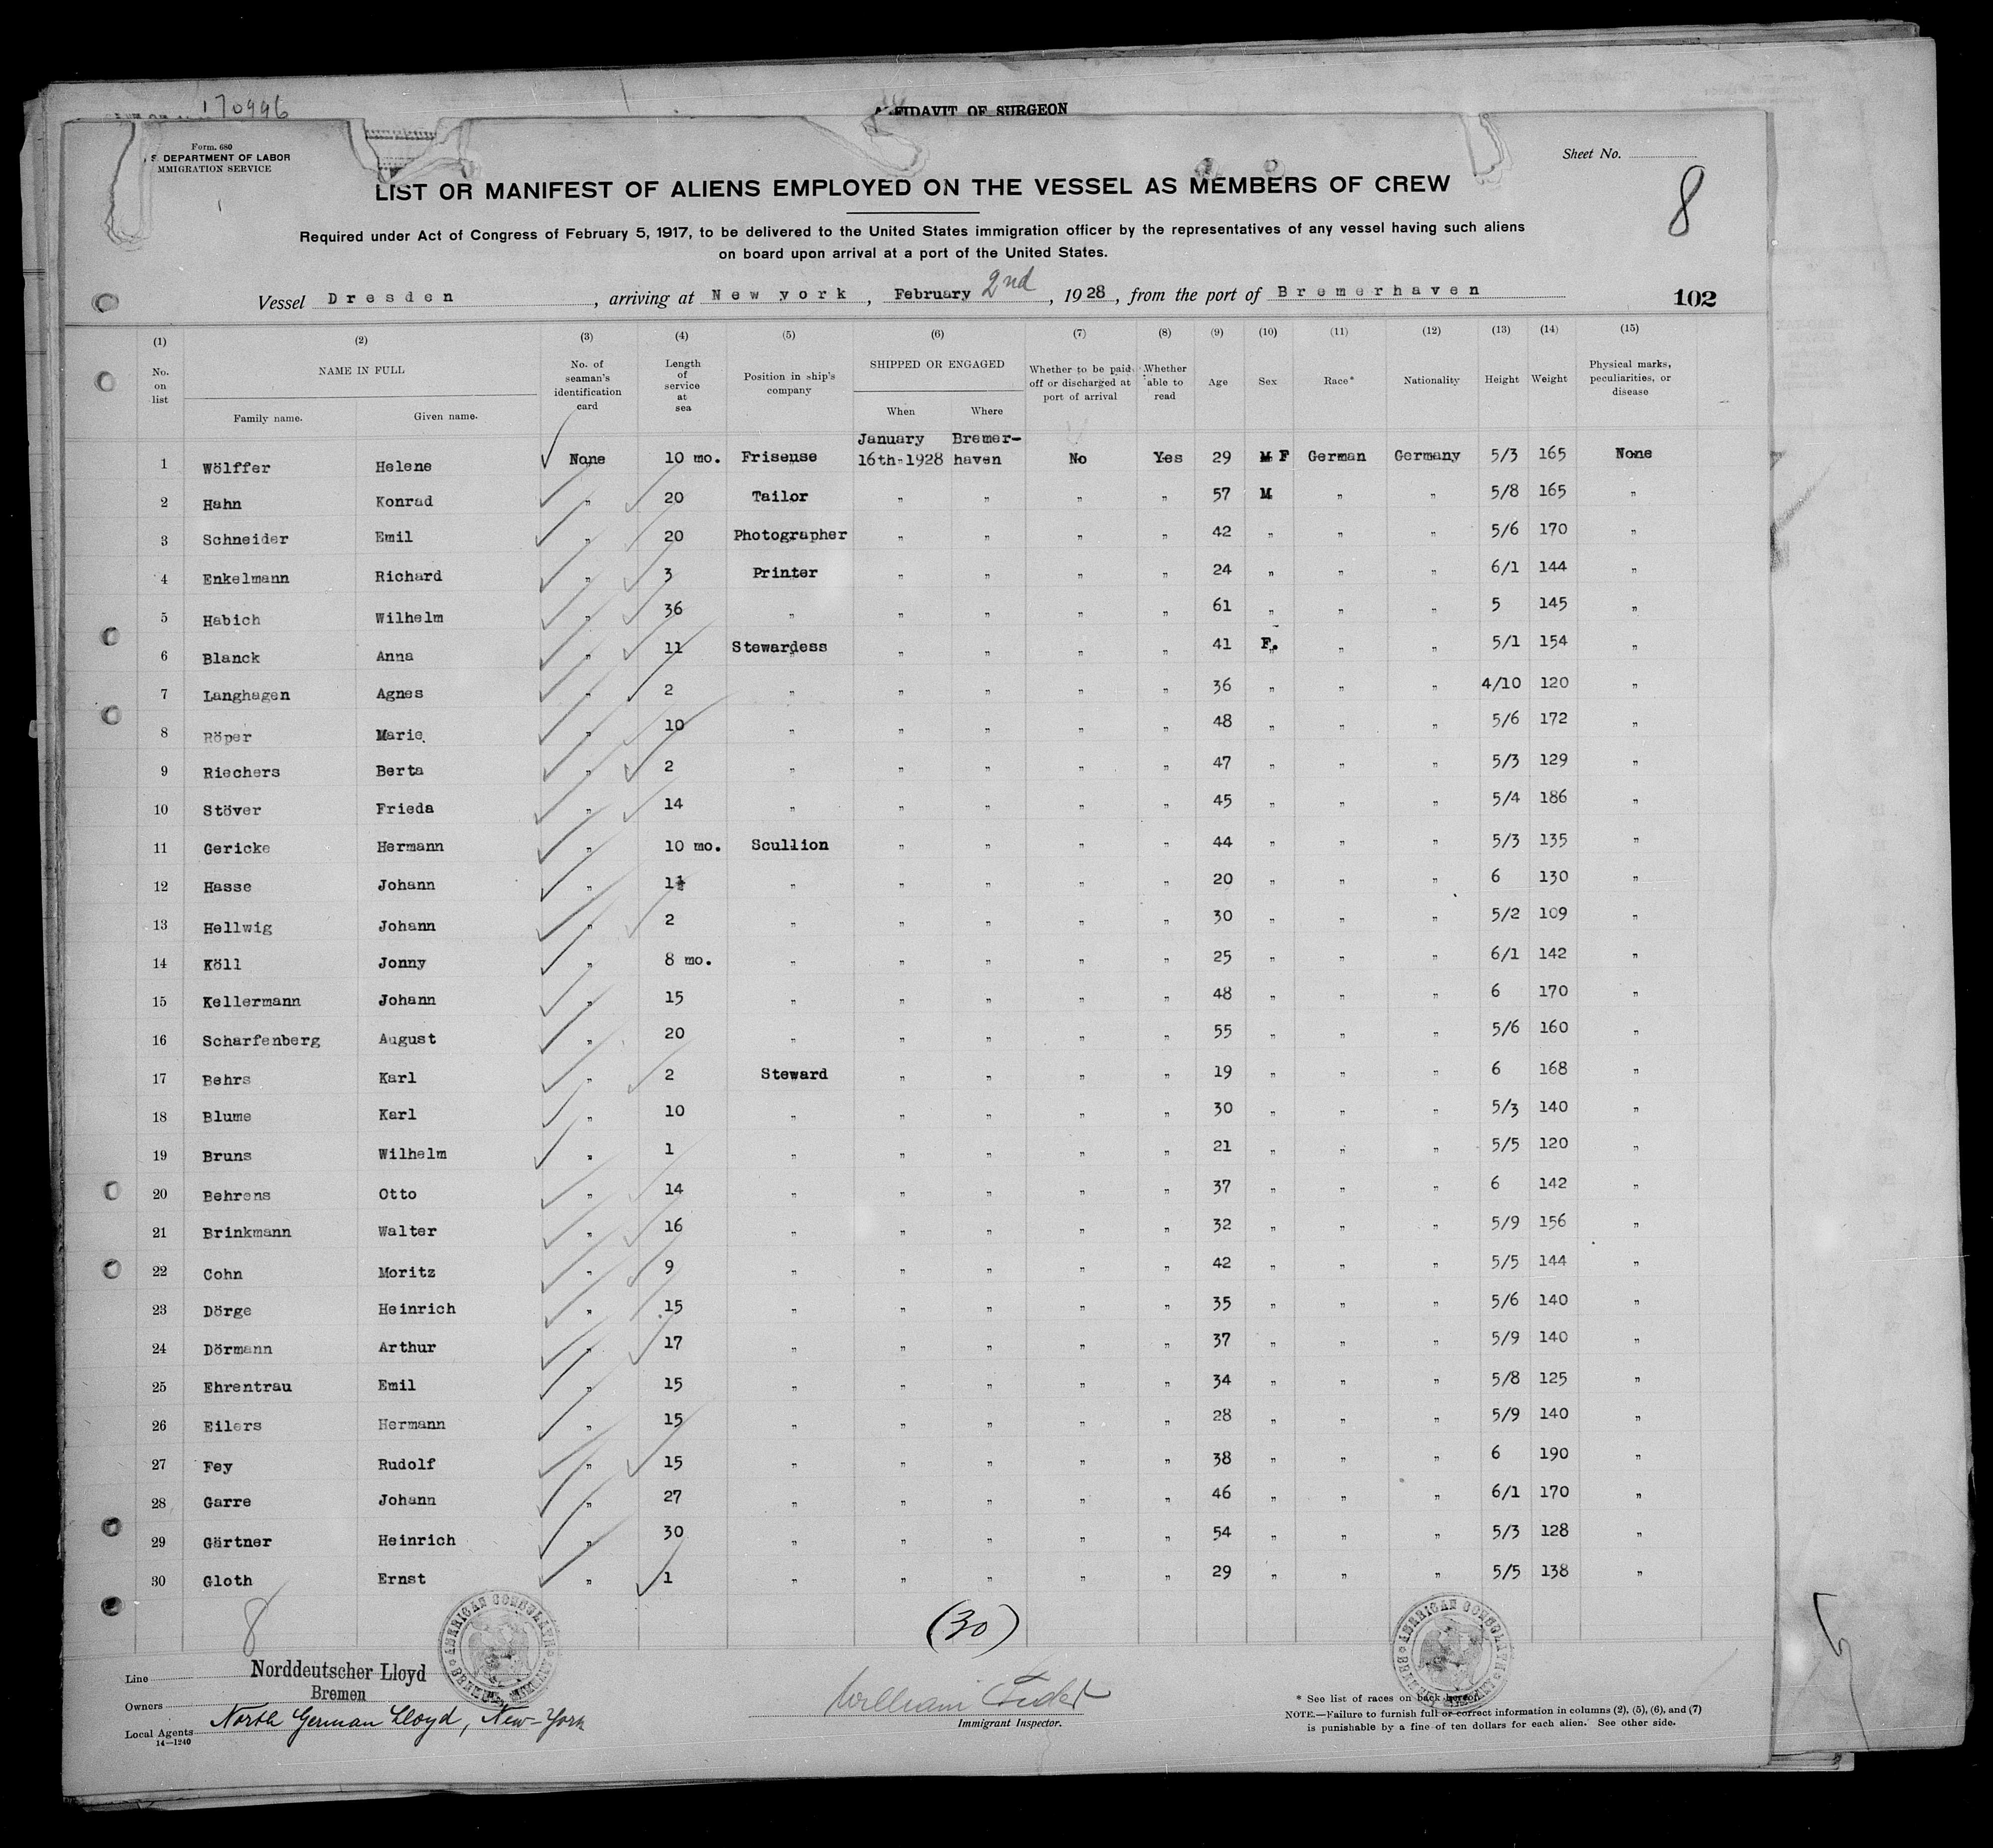 170996
AFFIDAVIT OF SURGEON
Form. 680
S. DEPARTMENT OF LABOR
MMIGRATION SERVICE
Sheet No.
8
LIST OR MANIFEST OF ALIENS EMPLOYED ON THE VESSEL AS MEMBERS OF CREW
Required under Act of Congress of February 5, 1917, to be delivered to the United States immigration officer by the representatives of any vessel having such aliens
on board upon arrival at a port of the United States.
Vessel Dresden, arriving at New york, February 2nd, 1928, from the port of Bremerhaven
102
(1) (2) (3) (4) (5) (6) (7) (8) (9) (10) (11) (12) (13) (14) (15)
No. on list NAME IN FULL Family name. Given name. No. of seaman's identification card Length of service at sea Position in ship's company SHIPPED OR ENGAGED When Where Whether to be paid off or discharged at port of arrival Whether able to read Age Sex Race* Nationality Height Weight Physical marks, peculiarities, or disease
1 Wölffer Helene None 10 mo. Friseuse January 16th-1928 Bremer-haven No Yes 29 M F German Germany 5/3 165 None
2 Hahn Konrad " 20 Tailor " " " " 57 M " " 5/8 165 "
3 Schneider Emil " 20 Photographer " " " " 42 " " " 5/6 170 "
4 Enkelmann Richard " 3 Printer " " " " 24 " " " 6/1 144 "
5 Habich Wilhelm " 36 " " " " " 61 " " " 5 145 "
6 Blanck Anna " 11 Stewardess " " " " 41 F. " " 5/1 154 "
7 Langhagen Agnes " 2 " " " " " 36 " " " 4/10 120 "
8 Röper Marie. " 10 " " " " " 48 " " " 5/6 172 "
9 Riechers Berta " 2 " " " " " 47 " " " 5/3 129 "
10 Stöver Frieda " 14 " " " " " 45 " " " 5/4 186 "
11 Gericke Hermann " 10 mo. Scullion " " " " 44 " " " 5/3 135 "
12 Hasse Johann " 1½ " " " " " 20 " " " 6 130 "
13 Hellwig Johann " 2 " " " " " 30 " " " 5/2 109 "
14 Köll Jonny " 8 mo. " " " " " 25 " " " 6/1 142 "
15 Kellermann Johann " 15 " " " " " 48 " " " 6 170 "
16 Scharfenberg August " 20 " " " " " 55 " " " 5/6 160 "
17 Behrs Karl " 2 Steward " " " " 19 " " " 6 168 "
18 Blume Karl " 10 " " " " " 30 " " " 5/3 140 "
19 Bruns Wilhelm " 1 " " " " " 21 " " " 5/5 120 "
20 Behrens Otto " 14 " " " " " 37 " " " 6 142 "
21 Brinkmann Walter " 16 " " " " " 32 " " " 5/9 156 "
22 Cohn Moritz " 9 " " " " " 42 " " " 5/5 144 "
23 Dörge Heinrich " 15 " " " " " 35 " " " 5/6 140 "
24 Dörmann Arthur " 17 " " " " " 37 " " " 5/9 140 "
25 Ehrentrau Emil " 15 " " " " " 34 " " " 5/8 125 "
26 Eilers Hermann " 15 " " " " " 28 " " " 5/9 140 "
27 Fey Rudolf " 15 " " " " " 38 " " " 6 190 "
28 Garre Johann " 27 " " " " " 46 " " " 6/1 170 "
29 Gärtner Heinrich " 30 " " " " " 54 " " " 5/3 128 "
30 Gloth Ernst " 1 " " " " " 29 " " " 5/5 138 "
8
(30)
AMERICAN CONSULATE
AMERICAN CONSULATE
Line Norddeutscher Lloyd
Bremen
Owners
Local Agents North German Lloyd, New-York
14—1240
William
Immigrant Inspector.
* See list of races on back hereof.
NOTE.—Failure to furnish full or correct information in columns (2), (5), (6), and (7)
is punishable by a fine of ten dollars for each alien. See other side.